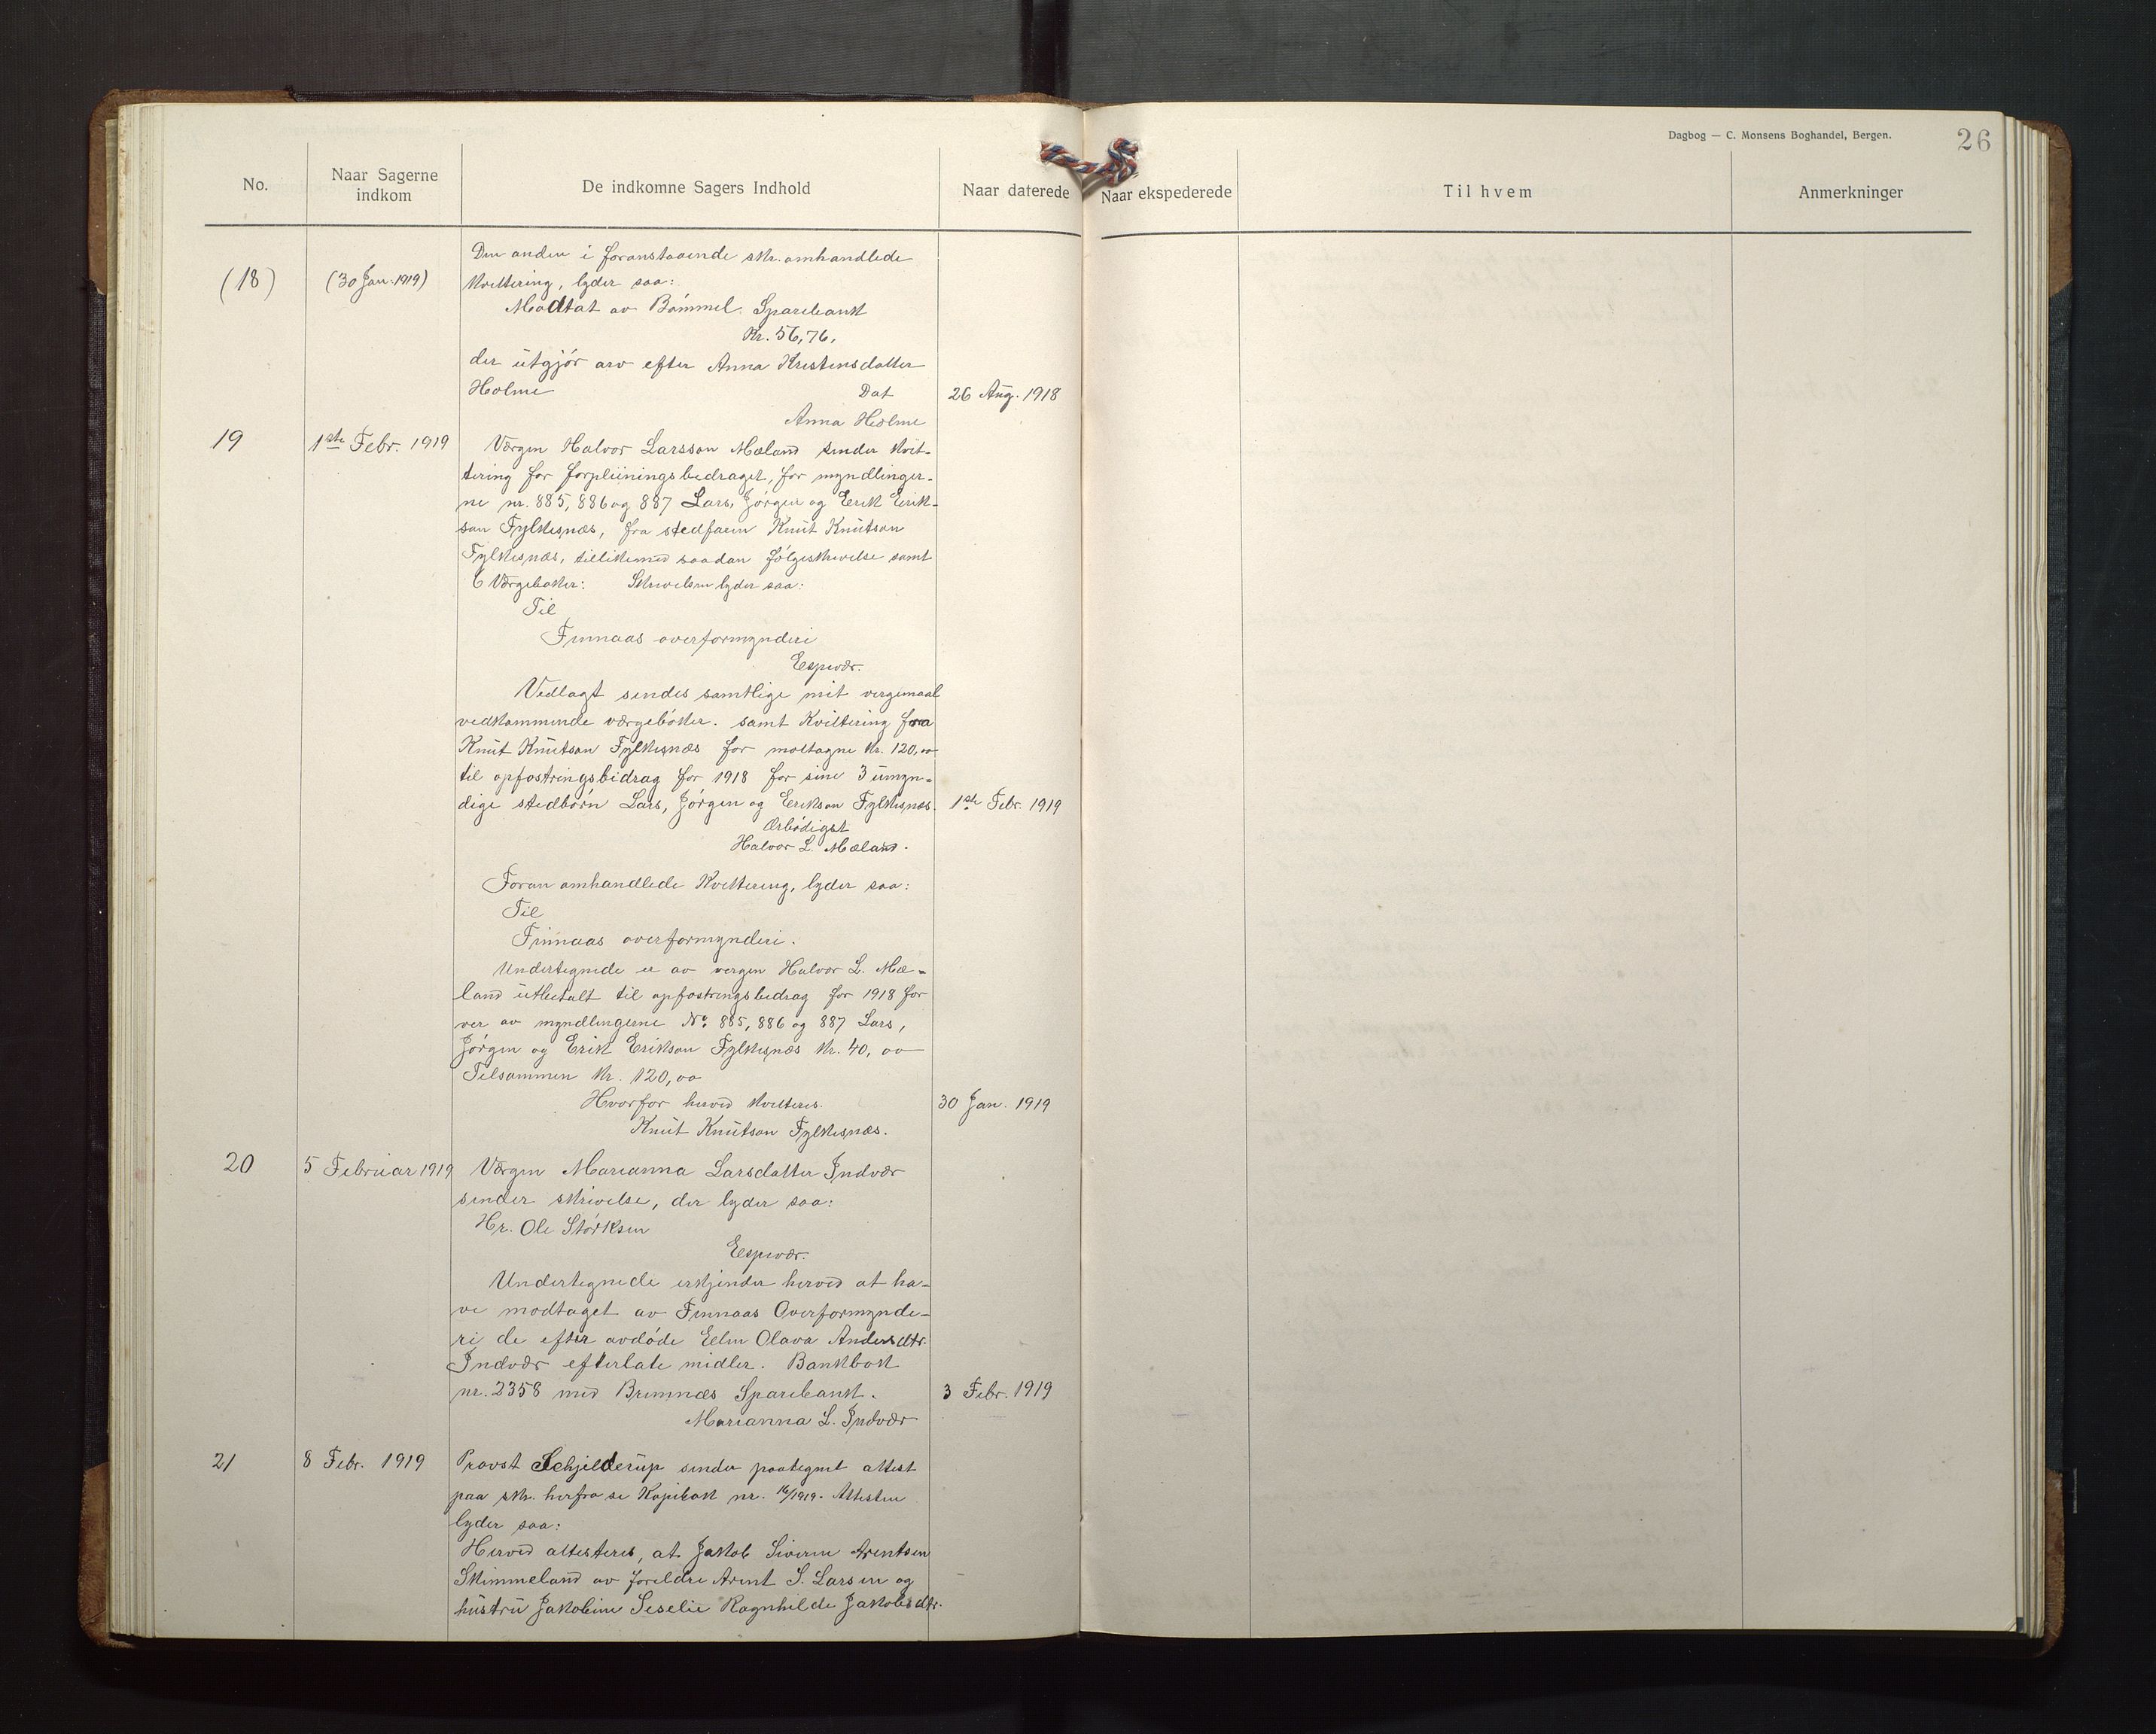 Dagbog — C. Monsens Boghandel, Bergen.
26
No.
Naar Sagerne
indkom
De indkomne Sagers Indhold
Naar daterede
Naar ekspederede
Til hvem
Anmerkninger
(18)
(30 Jan. 1919)
Den anden i foranstaaende skr. omhandlede
kvittering, lyder saa:
Modtat av Bømmel Sparebank
Kr. 56,76,
der utgjør arv efter Anna Kristensdatter
Holme Dat 26 Aug. 1918
Anna Holme
19 1ste Febr. 1919 Vergen Halvor Larsson Mæland sender kvit-
tering for forpleiningsbedraget, for myndlinger-
ne nr. 885, 886 og 887 Lars, Jørgen og Erik Erik-
son Fylkesnæs, fra stedfaren Knut Knutson
Fylkesnæs, tillikemed saadan følgeskrivelse samt
6 Værgebøker: Skrivelsen lyder saa:
Til
Finnaas overformynderi
Espevær.
Vedlagt sendes samtlige mit vergemaal
vedkommende værgebøker. samt kvittering fra
Knut Knutson Fylkesnæs for mottagne kr. 120,00
til opfostringsbidrag for 1918 for sine 3 umyn-
dige stedbørn Lars, Jørgen og Erikson Fylkesnæs. 1ste Febr. 1919
Ærbødigst
Halvor L. Mæland.
Foran omhandlede kvittering, lyder saa:
Til
Finnaas overformynderi.
Undertegnede er av vergen Halvor L. Mæ-
land utbetalt til opfostringsbedrag for 1918 for
ver av myndlingerne No. 885, 886 og 887 Lars,
Jørgen og Erik Erikson Fylkesnæs kr. 40,00
Tilsammen kr. 120,00
Hvorfor herved kvitteres. 30 Jan. 1919
Knut Knutson Fylkesnæs.
20 5 Februar 1919 Værgen Marianna Larsdatter Indvær
sender skrivelse, der lyder saa:
Hr. Ole Størksen
Espevær.
Undertegnede erkjender herved at ha-
ve modtaget av Finnaas Overformynde-
ri de efter avdøde Ellen Olava Andersdtr.
Indvær efterlate midler. Bankbok
nr. 2358 med Bremnæs Sparebank. 3 Febr. 1919
Marianna L. Indvær
21 8 Febr. 1919 Provst Schjelderup sender paategnet attest
paa skr. herfra se Kopibok nr. 16/1919. Attesten
lyder saa:
Herved attesteres, at Jakob Siverin Arentsen
Skimmeland av foreldre Arent S. Larsen og
hustru Jakobine Seselie Ragnhilde Jakobsdtr.